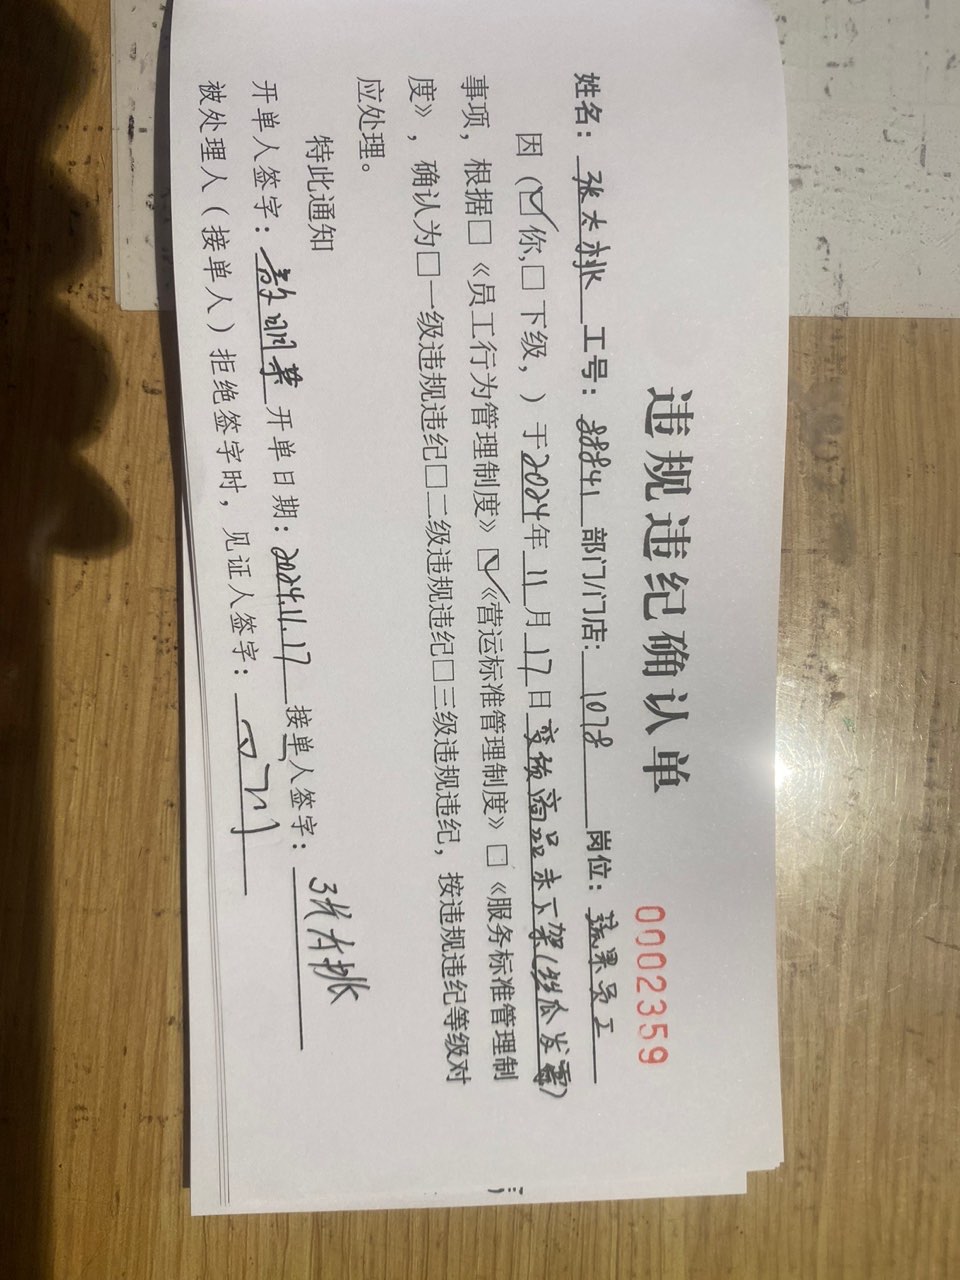 违规违纪确认单 0002359
姓名：张太桃 工号：28841 部门/门店：1078 岗位：蔬果员工
因（☑你，□下级，）于2024年11月17日变质商品未下架(丝瓜发霉)
事项，根据□《员工行为管理制度》☑《营运标准管理制度》□《服务标准管理制
度》，确认为□一级违规违纪□二级违规违纪□三级违规违纪，按违规违纪等级对
应处理。
特此通知
开单人签字： 开单日期：2024.11.17 接单人签字：张太桃
被处理人（接单人）拒绝签字时，见证人签字：